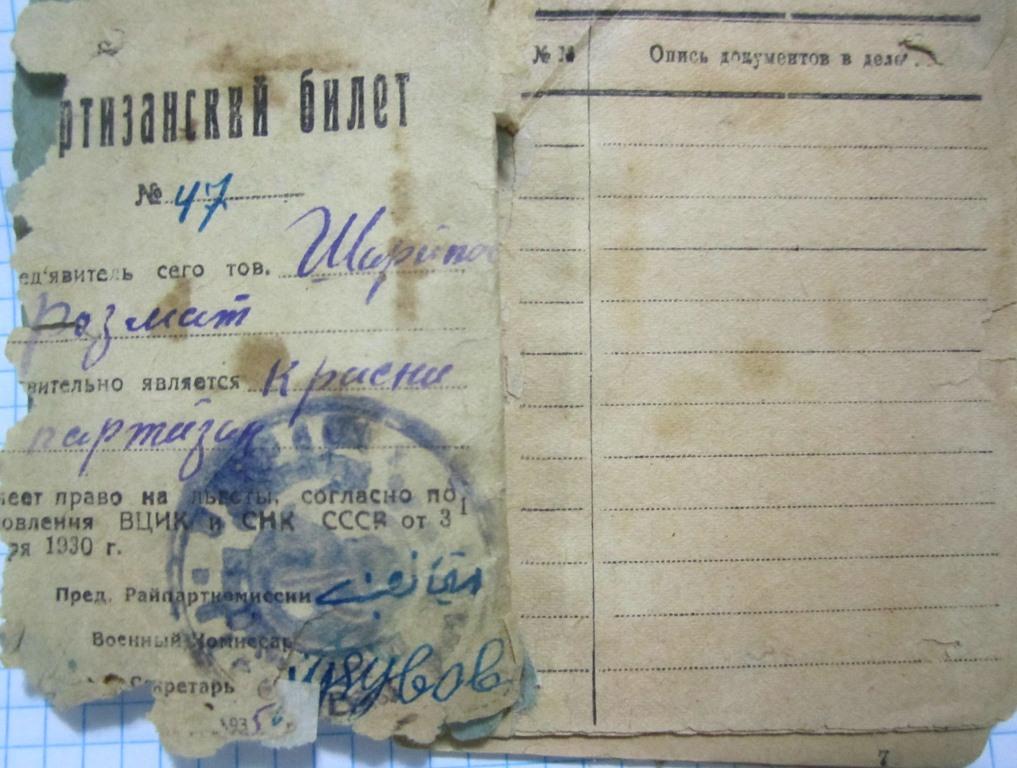 ртизанский билет
№ 47
ед'явитель сего тов. Шарипов
Розмат
вительно является Красни
партизан
меет право на льготы, согласно по
овления ВЦИК и СНК СССР от 31
ря 1930 г.
Пред. Райпарткомиссии
Военный Комиссар
Секретарь
1935
№ №
Опись документов в деле
7